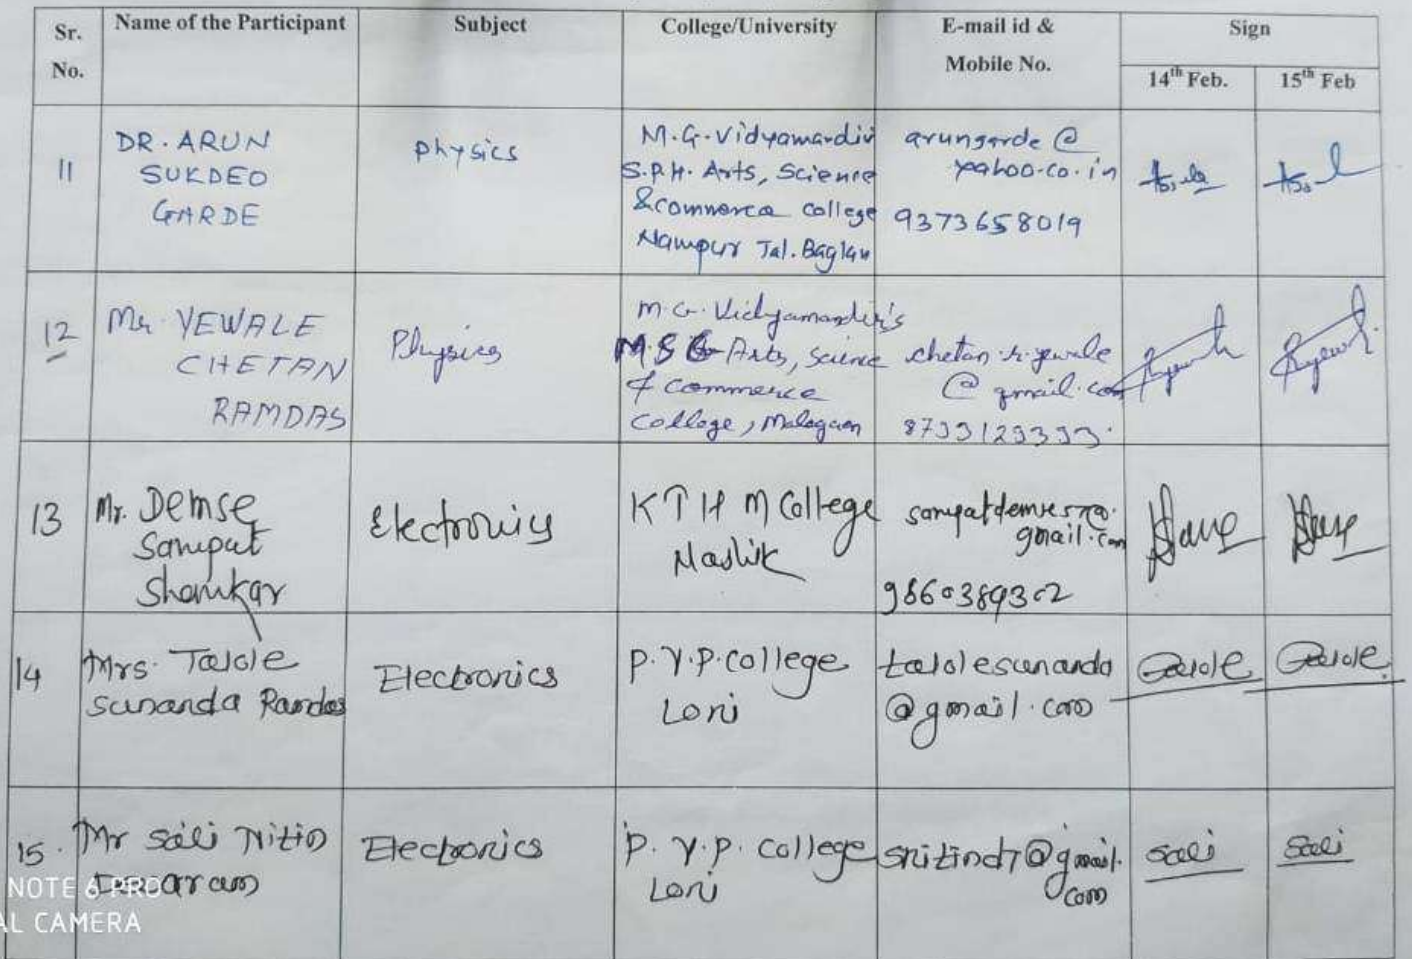 Sr. No. Name of the Participant Subject College/University E-mail id & Mobile No. Sign
14th Feb. 15th Feb
11
DR. ARUN
SUKDEO
GARDE
Physics
M.G. Vidyamandir
S.P.H. Arts, Science
& commerce college
Nampur Tal. Baglan
arungarde @
yahoo.co.in
9373658019
12
Mr. YEWALE
CHETAN
RAMDAS
Physics
M.G. Vidyamandir's
M S G Arts, Science
& Commerce
College, Malegaon
chetan.r.yewale
@ gmail.com
13
Mr. Demse
Sampat
Shankar
Electronics
K T H M College
Nashik
gmail.com
9860389302
14
Mrs. Talole
Sunanda Ramdas
Electronics
P.V.P. college
Loni
talolesunanda
@gmail.com
Talole Talole
15.
Mr Sali Nitin
Electronics
P.V.P. college
Loni
@gmail.
com
Sali Sali
NOTE 6 PRO
AL CAMERA